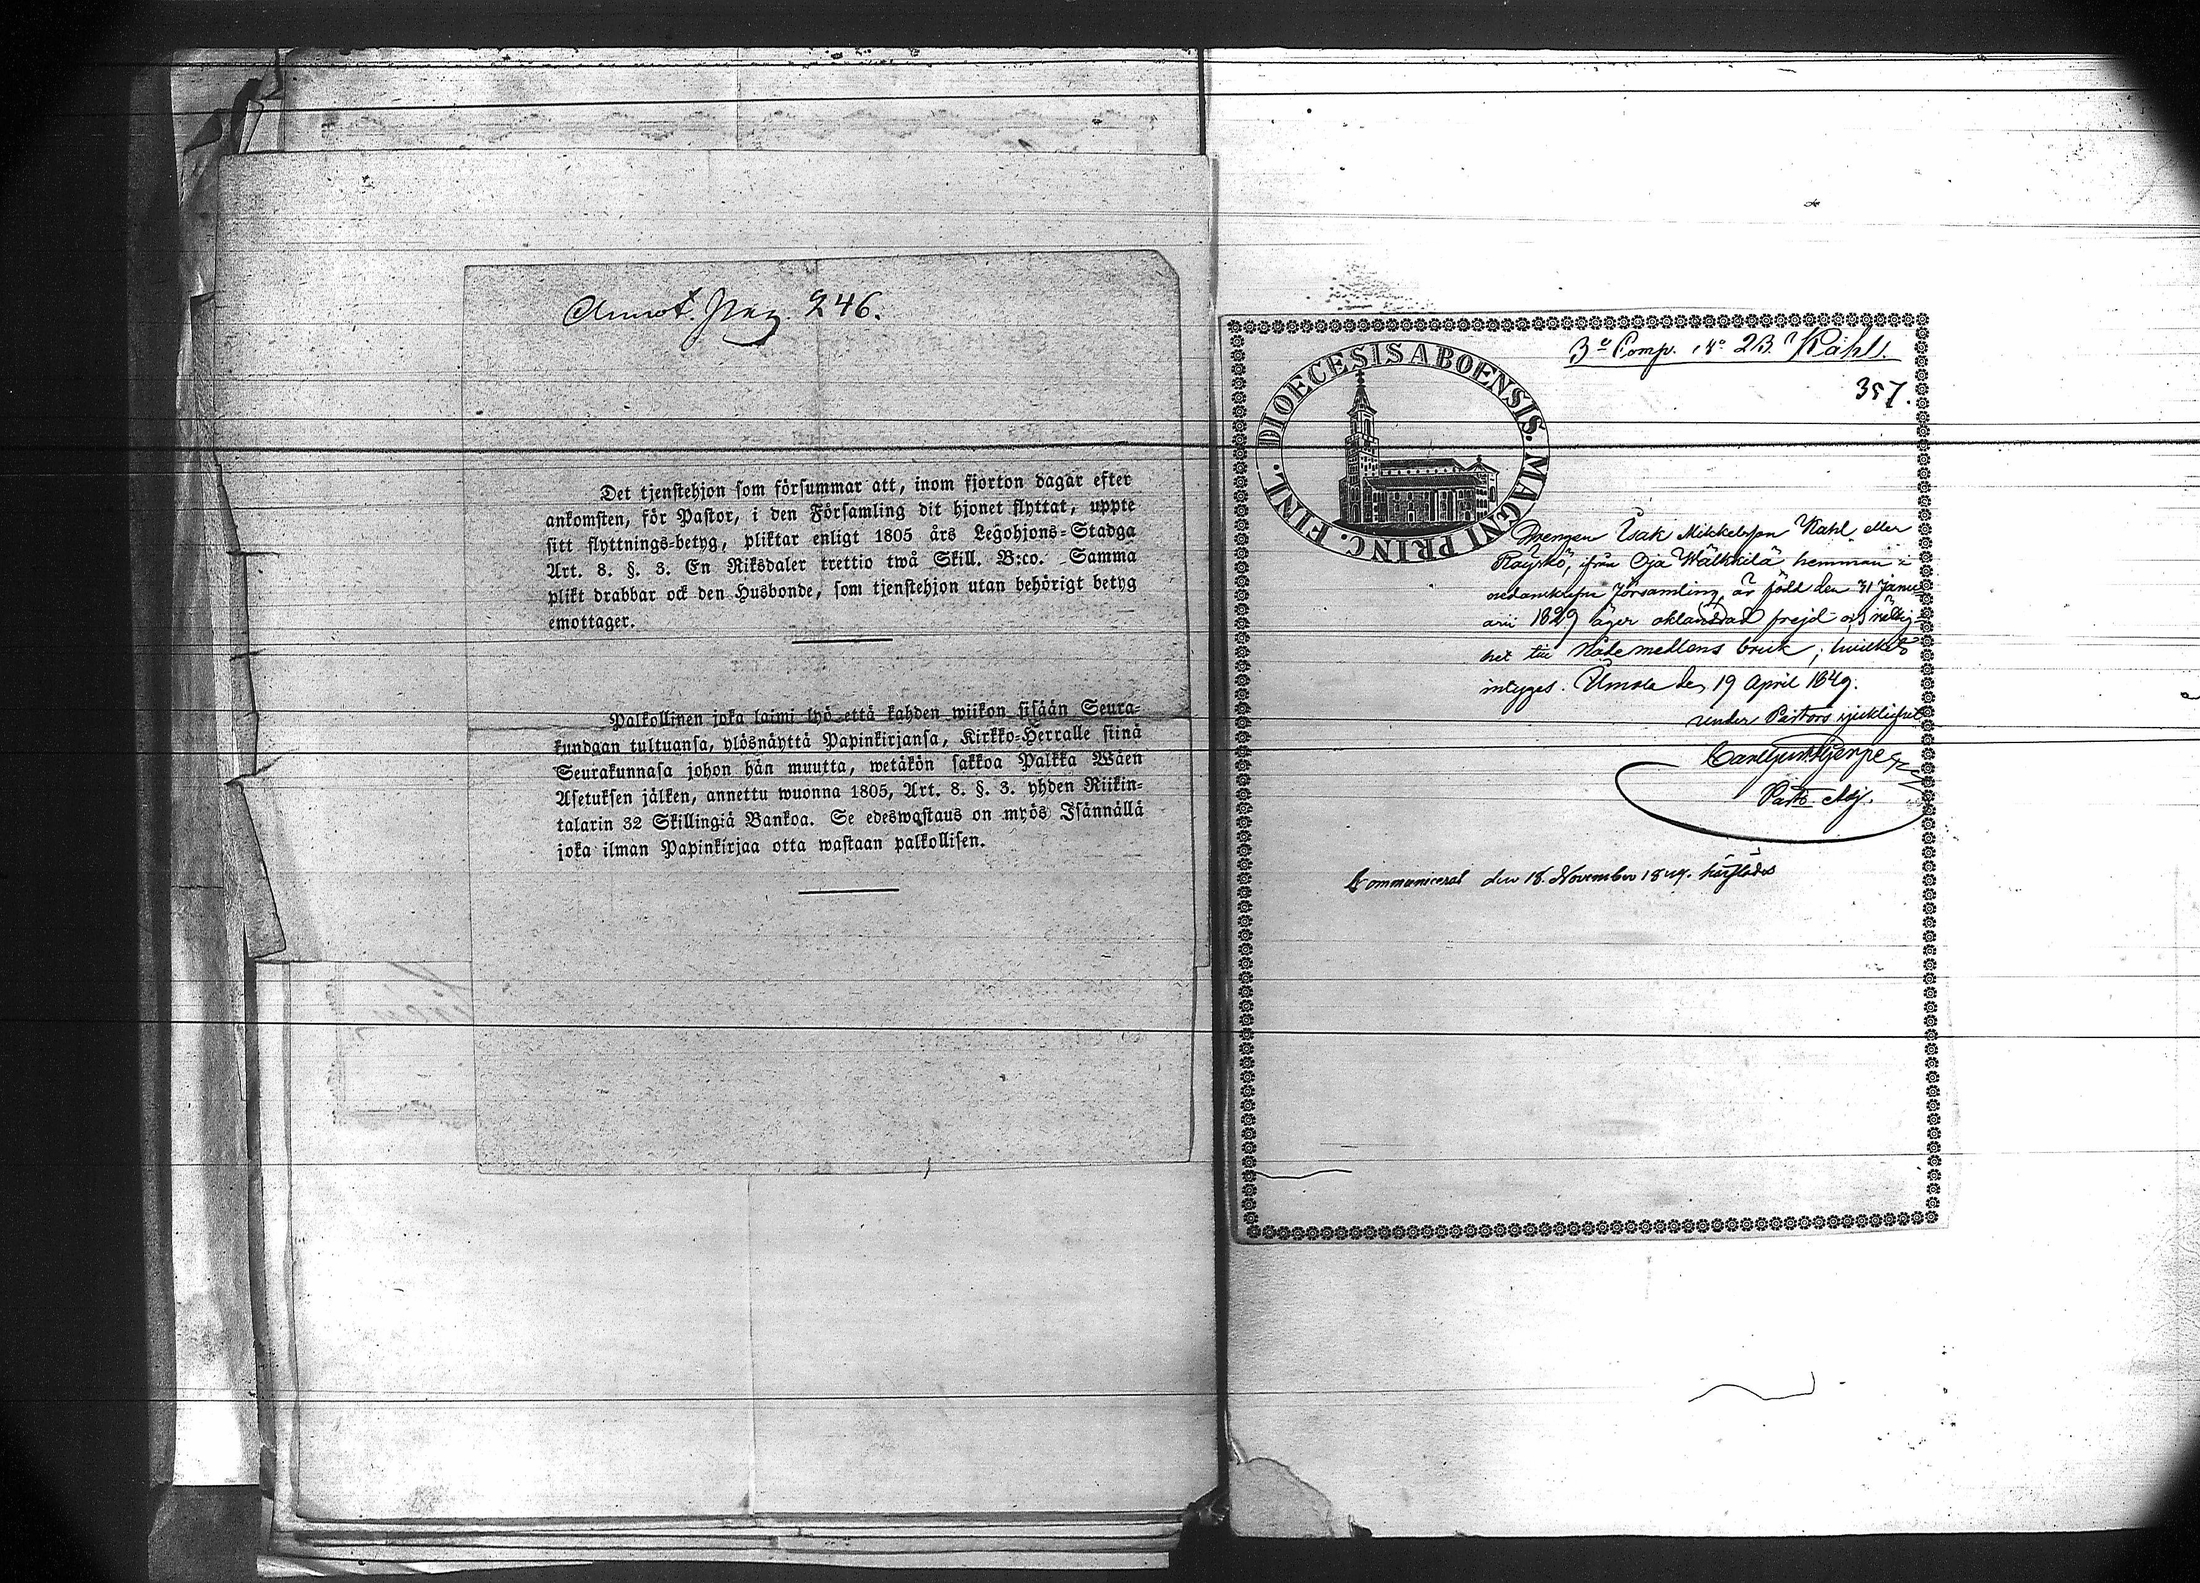 Annot. Pag. 246.
Det tjenstehjon som försummar att, inom fjorton dagar efter
ankomsten, för Pastor, i den Församling dit hjonet flyttat, uppte
sitt flyttnings-betyg, pliktar enligt 1805 års Legohjons-Stadga
Art. 8. §. 3. En Riksdaler trettio twå Skill. B:co. Samma
plikt drabbar ock den Husbonde, som tjenstehjon utan behörigt betyg
emottager.
Palkollinen joka laimi lyö että kahden wiikon sisään Seura-
kundaan tultuansa, ylösnäyttä Papinkirjansa, Kirkko-Herralle siinä
Seurakunnasa johon hän muutta, wetäkön sakkoa Palkka Wäen
Asetuksen jälken, annettu wuonna 1805, Art. 8. §. 3. yhden Riikin-
talarin 32 Skillingiä Bankoa. Se edeswastaus on myös Isännällä
joka ilman Papinkirjaa otta wastaan palkollisen.
3o Comp. No 23. Kahl.
357.
DIOECESIS ABOENSIS. MAGNI PRINC. FINL.
Drengen Isak Mikkelsson Kahl eller
Räyskö, ifrån Oja Wälkkilä hemman i
nedanskrifne Församling, är född den 31 Janu-
arii 1829 äger oklandrad frejd och rättig-
het till Nådemedlens bruk; hvilket
intygas. Urmola den 19 April 1849.
under Pastors sjuklighet
Carl Gust. Hjerpe
Past. Adj.
Communicerat den 18. November 1849.